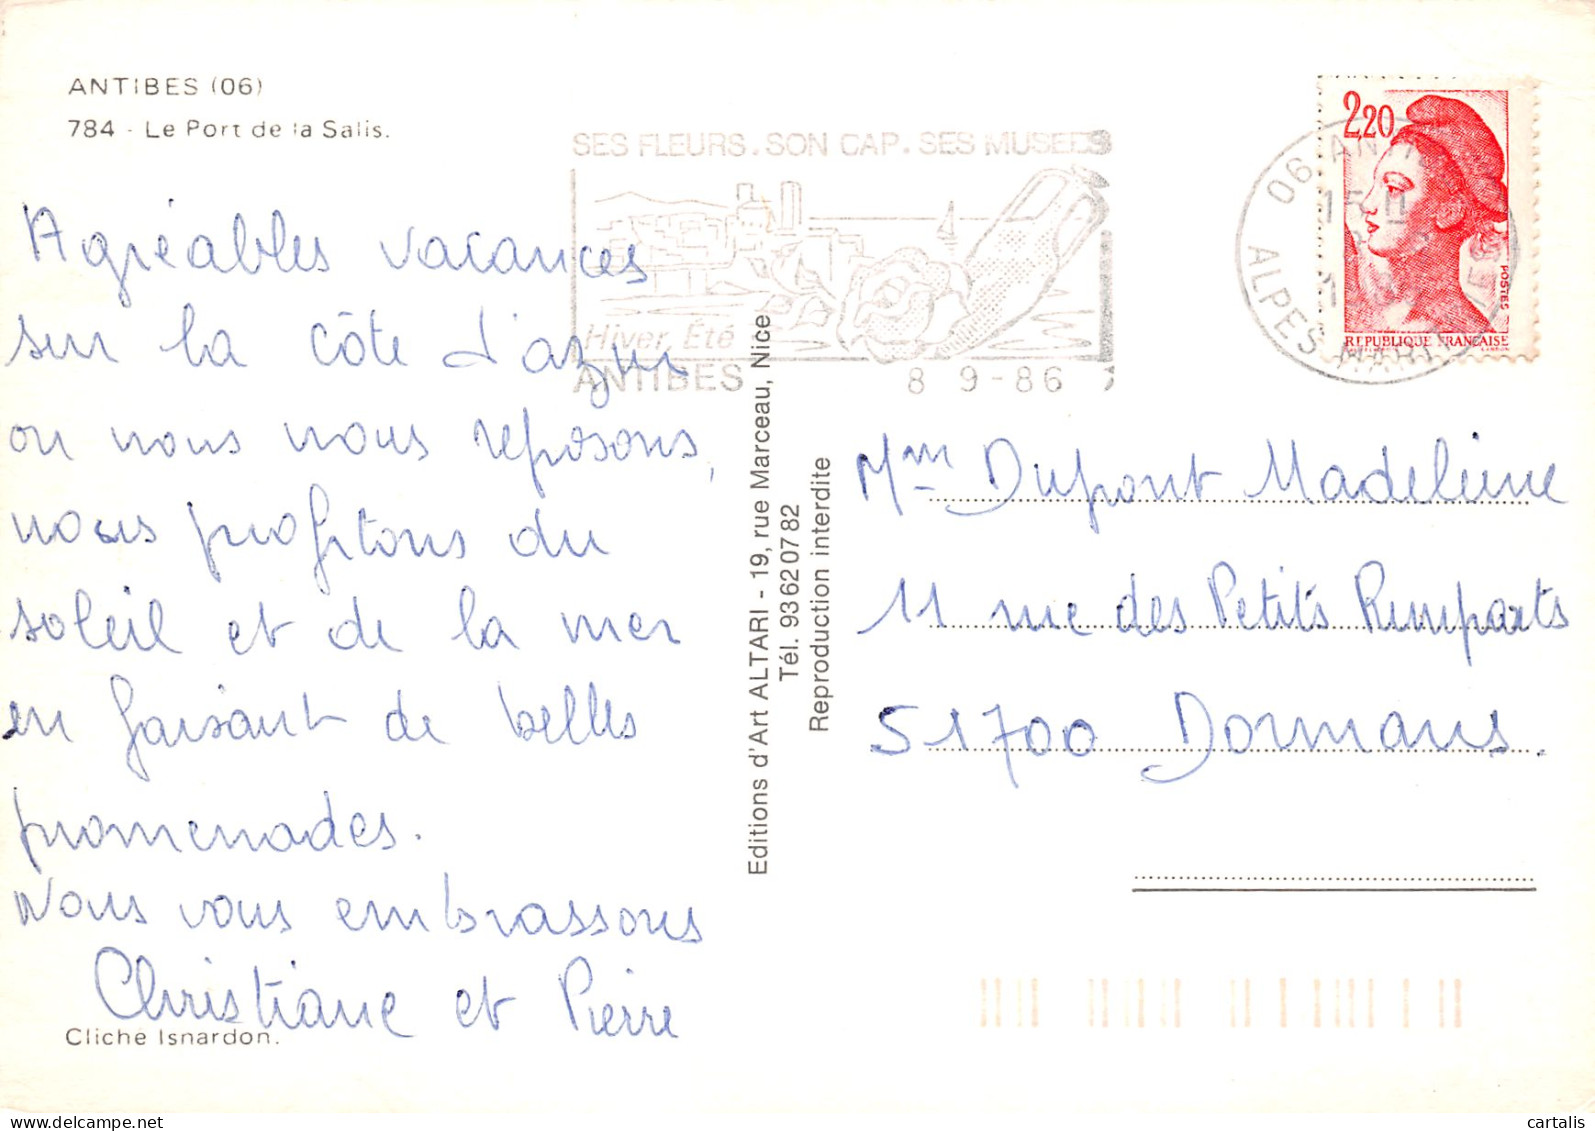 ANTIBES (06)
784 - Le Port de la Salis.
SES FLEURS. SON CAP. SES MUSEES
Hiver, Été
ANTIBES
8 9-86
2,20
POSTES
REPUBLIQUE FRANÇAISE
06 ANTIBES
15 H
ALPES MARITIMES
Agréables vacances
sur la côte d'azur
ou nous nous reposons,
nous profitons du
soleil et de la mer
en faisant de belles
promenades.
Nous vous embrassons
Christiane et Pierre
Cliché Isnardon.
Editions d'Art ALTARI - 19, rue Marceau, Nice
Tél. 93 62 07 82
Reproduction interdite
Mme Dupont Madeleine
11 rue des Petits Remparts
51700 Dormans.
delcampe.net
cartalis